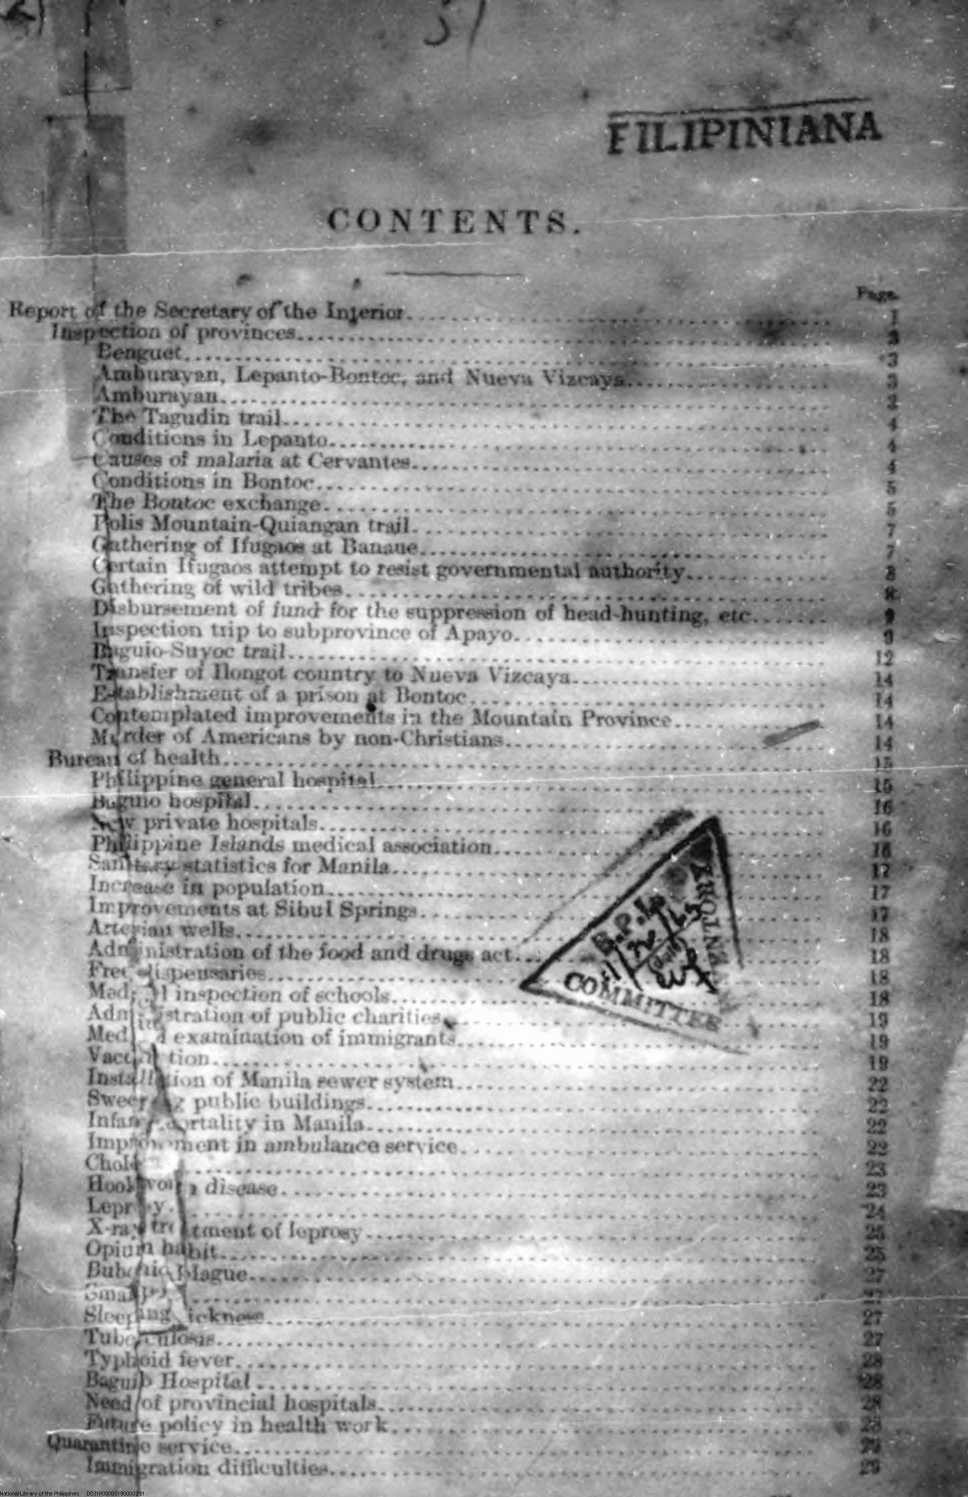 FILIPINIANA
CONTENTS.
Page.
Report of the Secretary of the Interior 1
Inspection of provinces 3
Benguet 3
Amburayan, Lepanto-Bontoc, and Nueva Vizcaya 3
Amburayan 3
The Tagudin trail 4
Conditions in Lepanto 4
Causes of malaria at Cervantes 4
Conditions in Bontoc 5
The Bontoc exchange 5
Polis Mountain-Quiangan trail 7
Gathering of Ifugaos at Banaue 7
Certain Ifugaos attempt to resist governmental authority 8
Gathering of wild tribes 8
Disbursement of fund for the suppression of head-hunting, etc 9
Inspection trip to subprovince of Apayo 9
Baguio-Suyoc trail 12
Transfer of Ilongot country to Nueva Vizcaya 14
Establishment of a prison at Bontoc 14
Contemplated improvements in the Mountain Province 14
Murder of Americans by non-Christians 14
Bureau of health 15
Philippine general hospital 15
Baguio hospital 16
New private hospitals 16
Philippine Islands medical association 16
Sanitary statistics for Manila 17
Increase in population 17
Improvements at Sibul Springs 17
Artesian wells 18
Administration of the food and drugs act 18
Free dispensaries 18
Medical inspection of schools 18
Administration of public charities 19
Medical examination of immigrants 19
Vaccination 19
Installation of Manila sewer system 22
public buildings 22
Infant mortality in Manila 22
Improvement in ambulance service 22
Cholera 23
Hookworm disease 23
Leprosy 24
X-ray treatment of leprosy 25
Opium habit 25
Bubonic plague 27
Smallpox 27
Sleeping sickness 27
Tuberculosis 27
Typhoid fever 28
Baguio Hospital 28
Need of provincial hospitals 28
Future policy in health work 28
Quarantine service 29
Immigration difficulties 29
B.P.L.
COMMITTEE
National Library of the Philippines